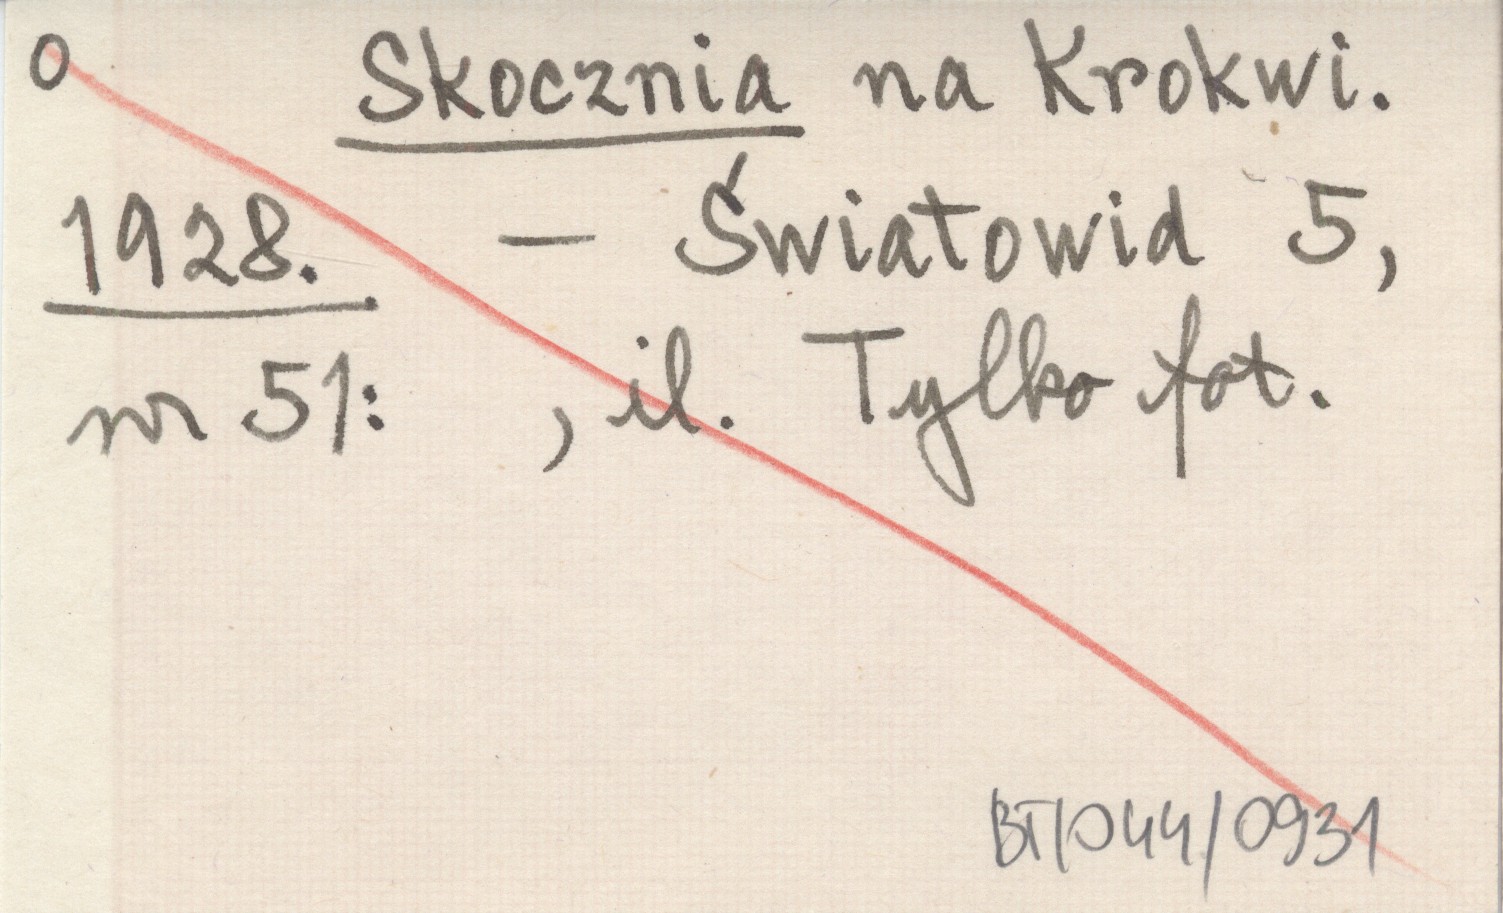 o Skocznia na Krokwi.
1928. — Światowid 5,
nr 51: , il. Tylko fot.
BT/044/0931